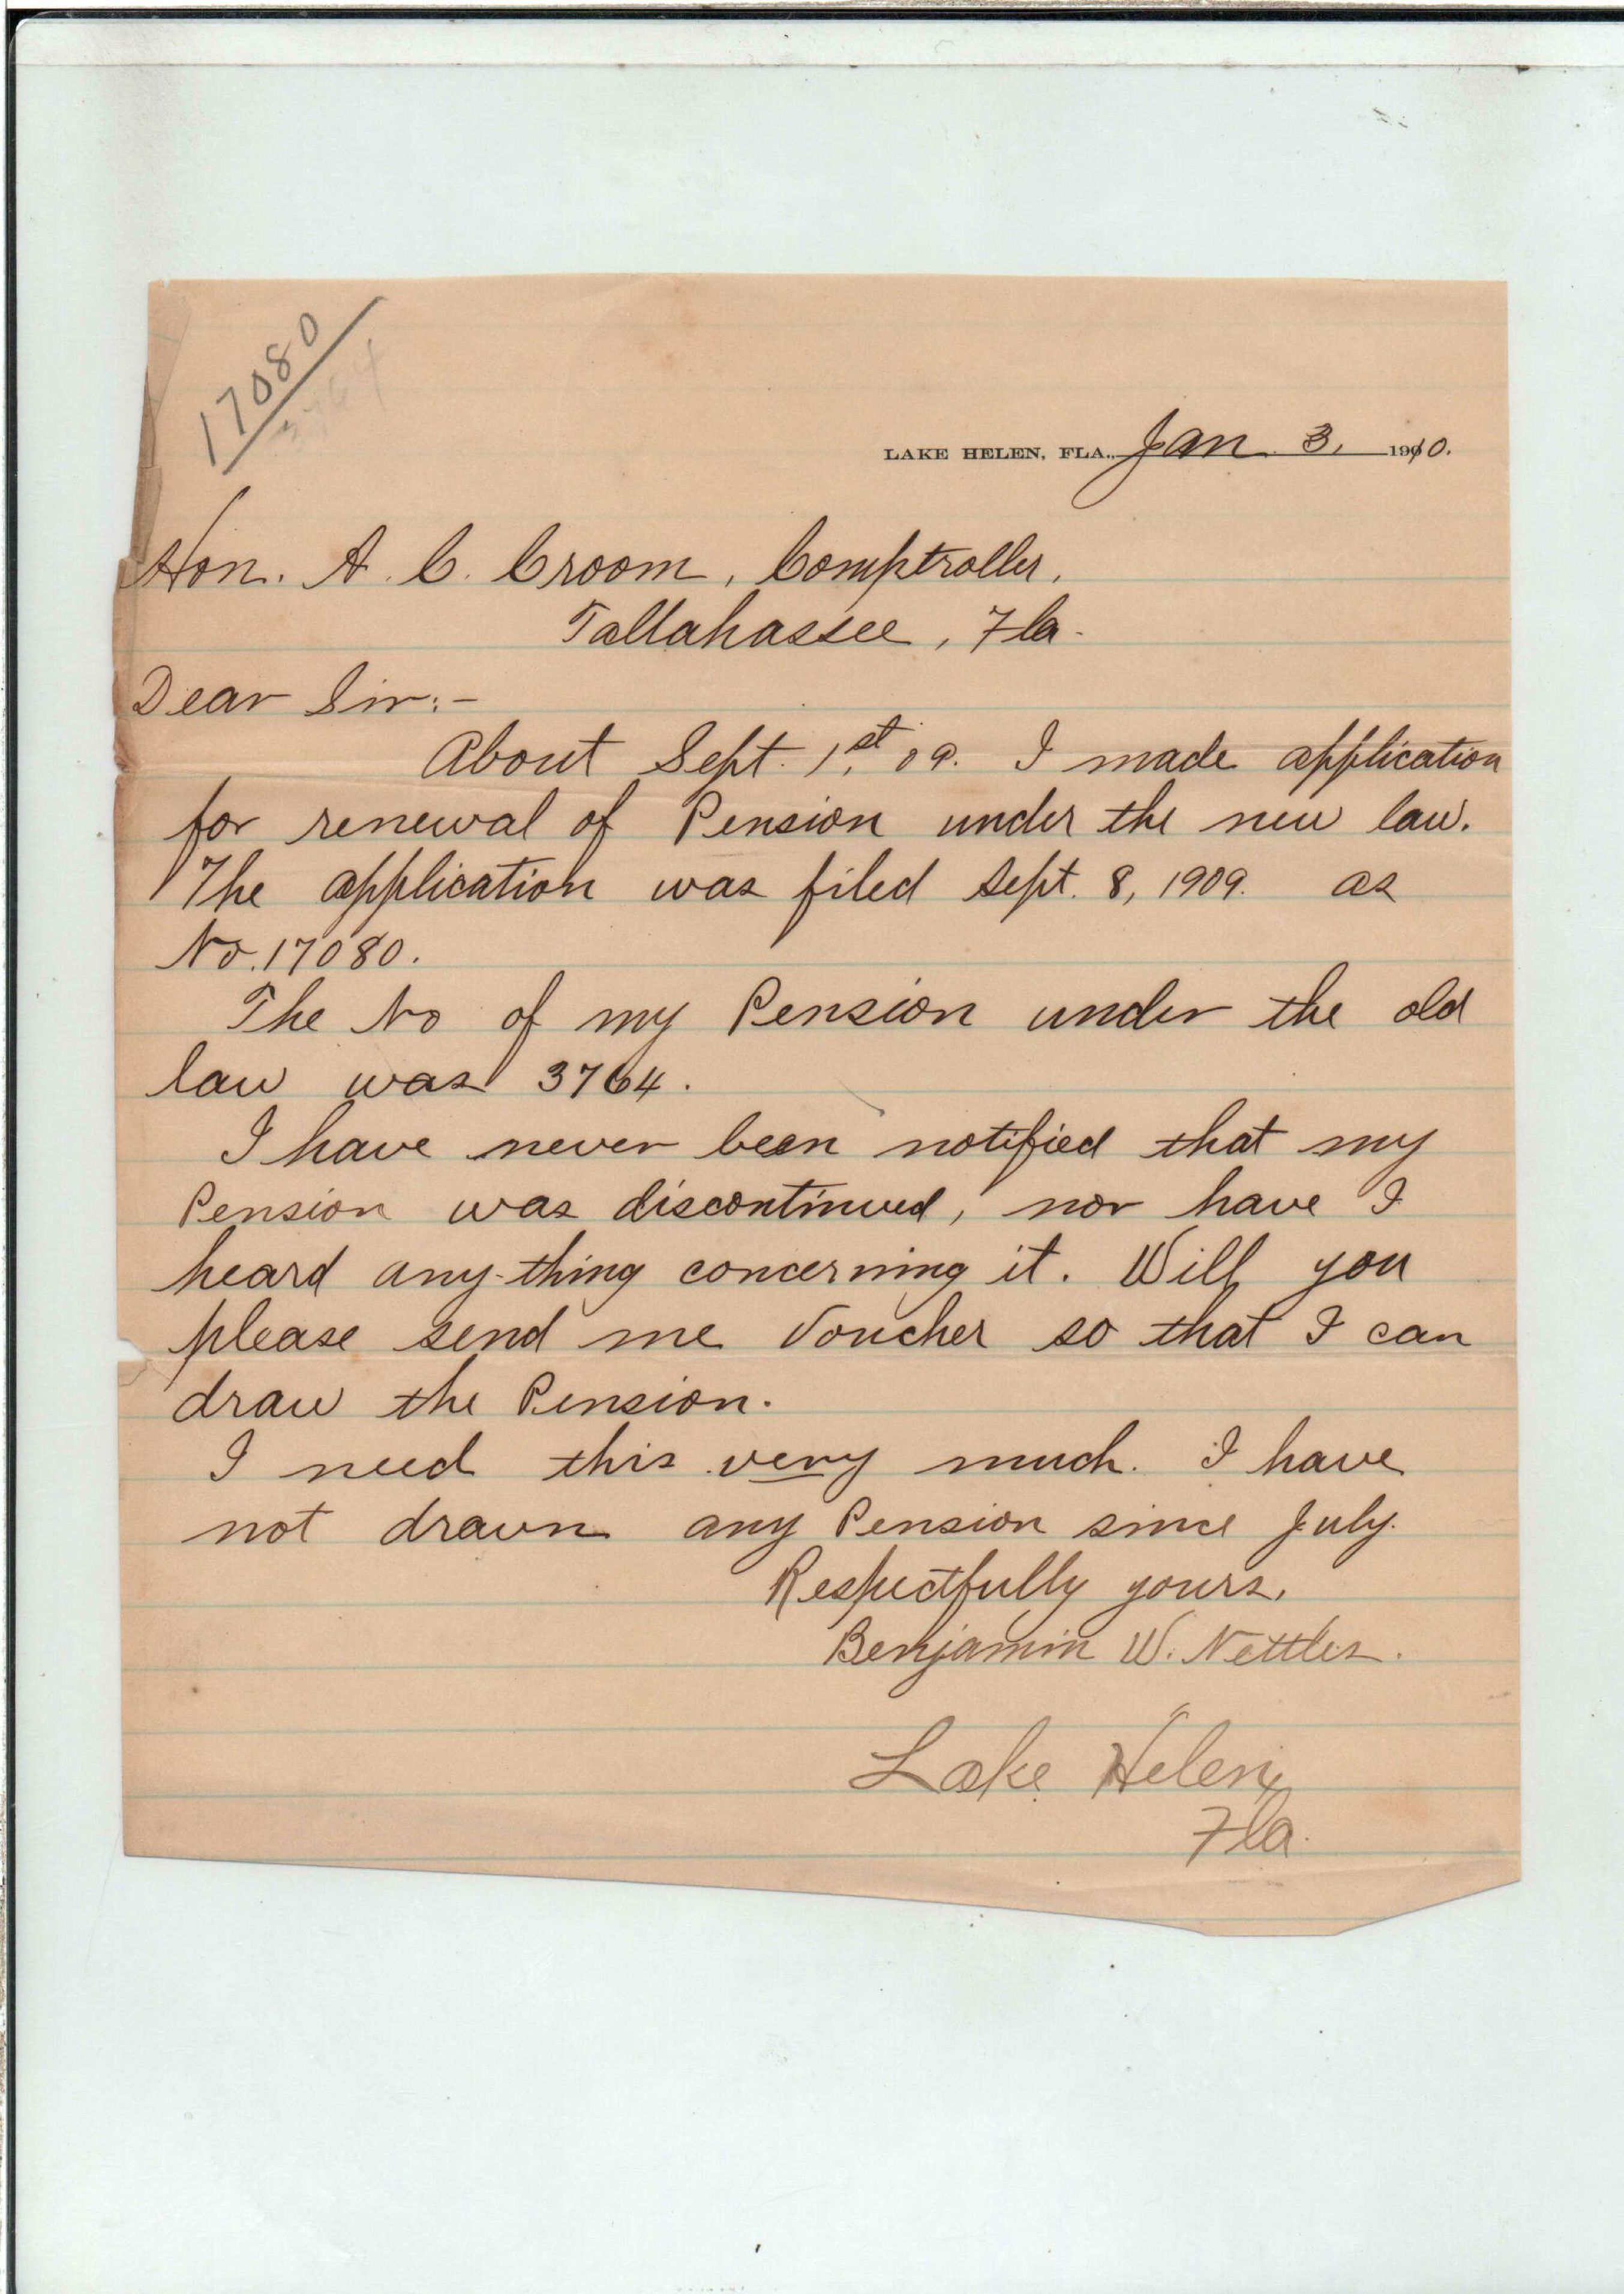 17080
3764
LAKE HELEN, FLA., Jan. 3, 1910.
Hon. A. C. Croom, Comptroller,
Tallahassee, Fla.
Dear Sir:-
About Sept. 1st, 09. I made application
for renewal of Pension under the new law.
The application was filed Sept. 8, 1909. as
No. 17080.
The No of my Pension under the old
law was 3764.
I have never been notified that my
Pension was discontinued, nor have I
heard any-thing concerning it. Will you
please send me Voucher so that I can
draw the Pension.
I need this very much. I have
not drawn any Pension since July.
Respectfully yours,
Benjamin W. Nettles.
Lake Helen,
Fla.